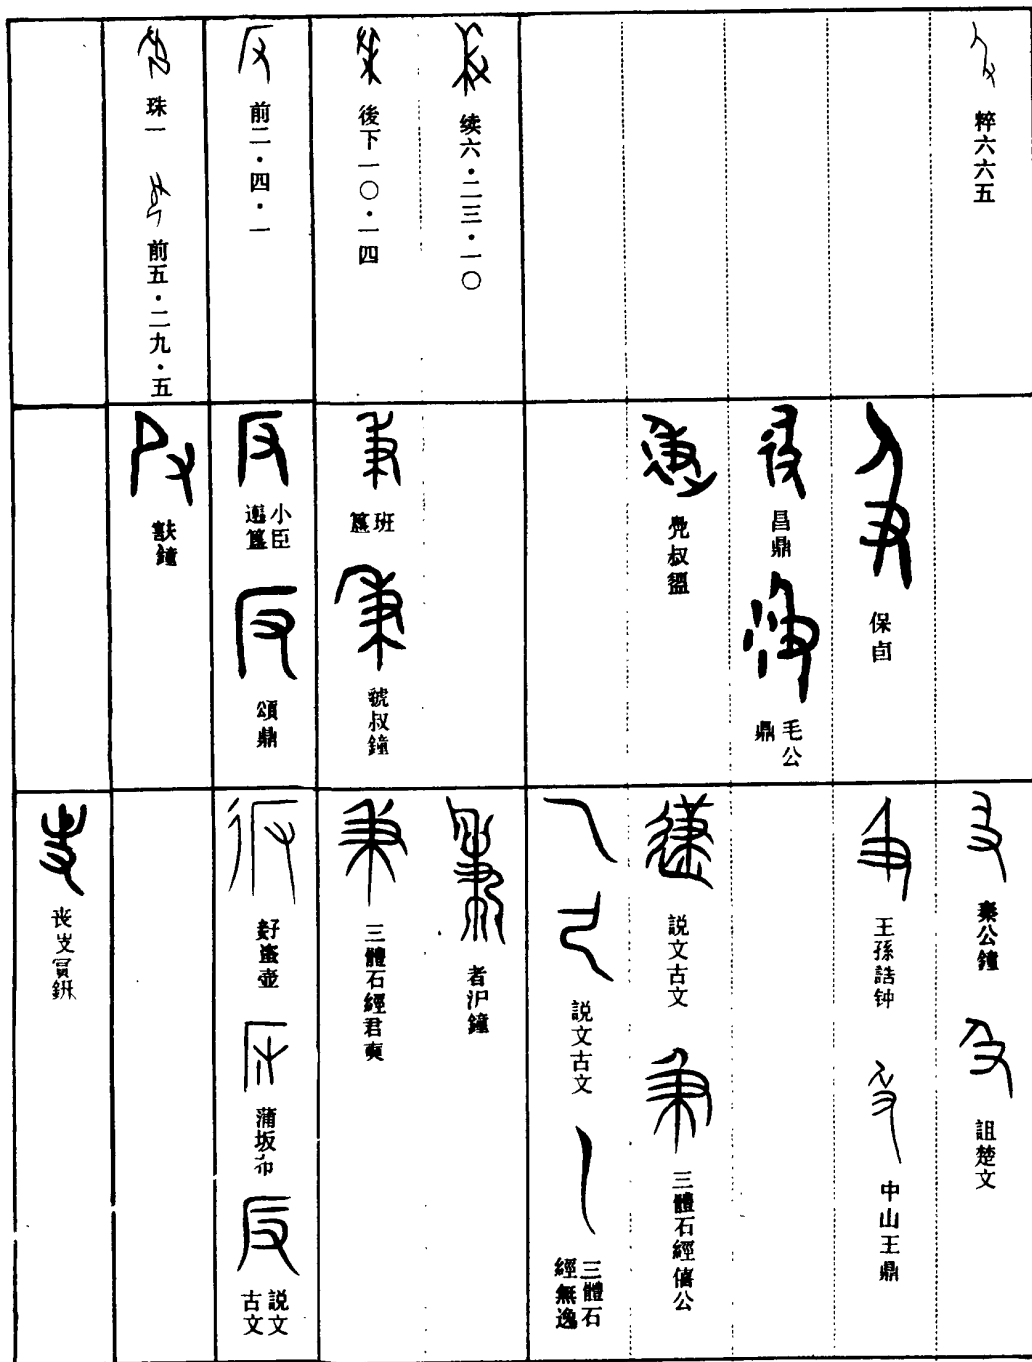 粹六六五
续六・二三・一〇
後下一〇・一四
前二・四・一
珠一
前五・二九・五
保卣
昌鼎
毛公鼎
叔盨
班簋
虢叔鐘
小臣簋
頌鼎
㝬鐘
秦公鐘
詛楚文
王孫誥钟
中山王鼎
説文古文
三體石經僖公
説文古文
三體石經無逸
者沪鐘
三體石經君奭
蚉壺
蒲坂布
説文古文